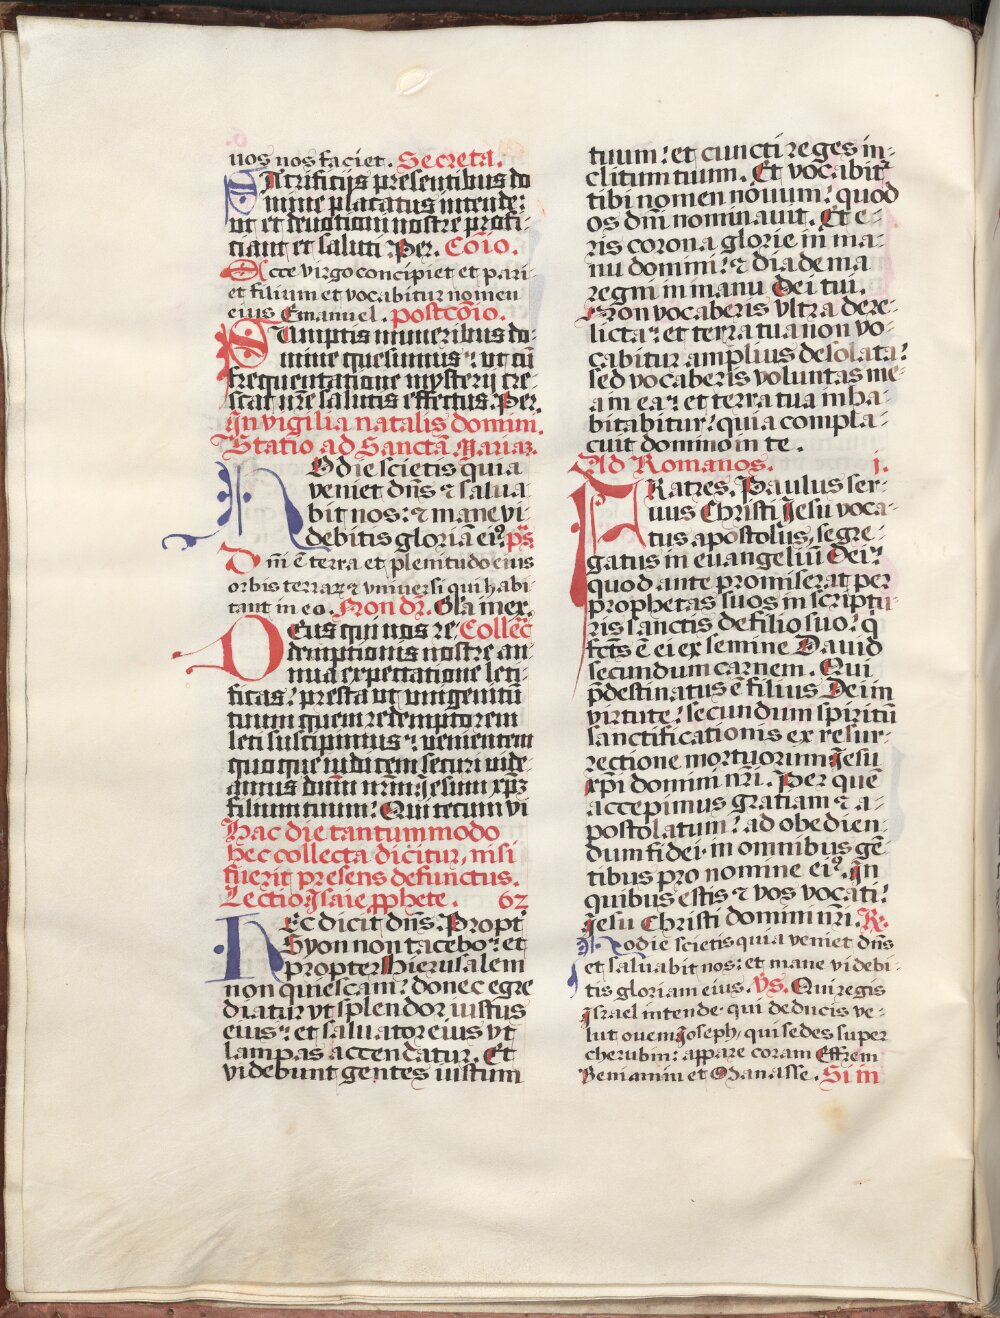 nos nos faciet. Secreta.
Sacrificijs presentibus do
mine placatus intende:
ut et deuotioni nostre profi-
ciant et saluti. Per. Cōio.
Ecce virgo concipiet et pari-
et filium et vocabitur nomen
eius Emanuel. postcōio.
Sumptis muneribus do-
mine quesumus: ut cū
frequentatione mysterij cre-
scat nr̄e salutis effectus. Per.
In vigilia natalis domini.
Statio ad Sanctā Mariaꝫ.
Hodie scietis quia
veniet dn̄s ⁊ salua
bit nos: ⁊ mane vi-
debitis gloriā eiꝰ. ps̄
Dn̄i ē terra et plenitudo eius
orbis terraꝝ ⁊ vniuersi qui habi-
tant in eo. Non dr̄. Gla in ex.
Deus qui nos re- Collec̄
demptionis nostre an-
nua expectatione leti-
ficas: presta ut unigenitū
tuum quem redemptorem
leti suscipimus: uenientem
quoque iudicem securi uide-
amus dnm̄ nrm̄ Jesum xp̄ꝫ
filium tuum: Qui tecum vi
Hac die tantummodo
hec collecta dicitur, nisi
fuerit presens defunctus.
Lectio Jsaie ꝓphete. 62
Hec dicit dn̄s. Propt̄
Syon non tacebo: et
propter Hierusalem
non quiescam: donec egre
diatur vt splendor iustus
eius: et saluator eius vt
lampas accendatur. Et
videbunt gentes iustum
tuum: et cuncti reges in-
clitum tuum. Et vocabit̄
tibi nomen nouum: quod
os dn̄i nominauit. Et e-
ris corona glorie in ma-
nu domini: ⁊ diadema
regni in manu Dei tui.
Non vocaberis vltra dere-
licta: et terra tua non vo-
cabitur amplius desolata:
sed vocaberis voluntas me-
a in ea: et terra tua inha-
bitabitur: quia compla-
cuit domino in te.
Ad Romanos. j.
Fratres. Paulus ser-
uus Christi Jesu voca-
tus apostolus, segre-
gatus in euangeliū Dei:
quod ante promiserat per
prophetas suos in scriptu-
ris sanctis de filio suo: q̄
fcts̄ ē ei ex semine Dauid
secundum carnem. Qui
p̄destinatus ē filius Dei in
virtute: secundum spiritū
sanctificationis ex resur-
rectione mortuorum Jesu
xp̄i domini nr̄i. Per quē
accepimus gratiam ⁊ a-
postolatum: ad obedien-
dum fidei in omnibus gē-
tibus pro nomine eiꝰ. In
quibus estis ⁊ vos vocati:
Jesu Christi domini nr̄i. R.
Hodie scietis quia veniet dn̄s
et saluabit nos: et mane videbi-
tis gloriam eius. Vs. Qui regis
Israel intende: qui deducis ve-
lut ouem Joseph, qui sedes super
cherubin: appare coram Effrem
Beniamin et Manasse. Si in